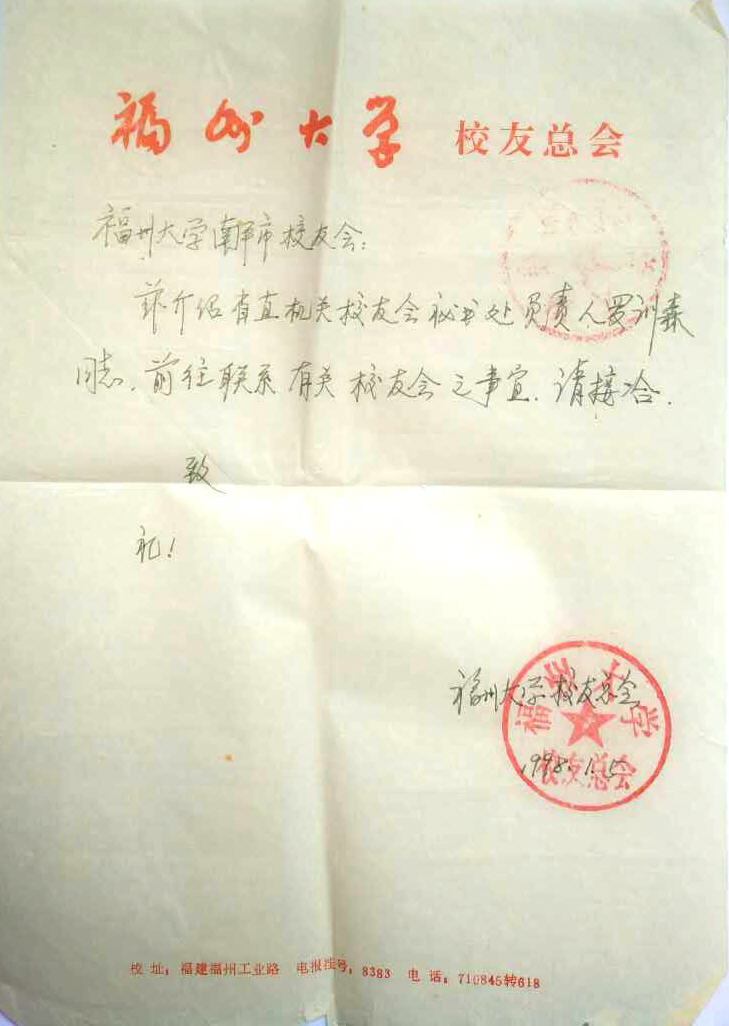 福州大学 校友总会
福州大学南平市校友会：
兹介绍省直机关校友会秘书处负责人罗训森
同志，前往联系有关校友会之事宜，请接洽．
致
礼！
福州大学校友总会
1998.1.5
福州大学
校友总会
校址：福建福州工业路 电报挂号：8383 电话：710845转618